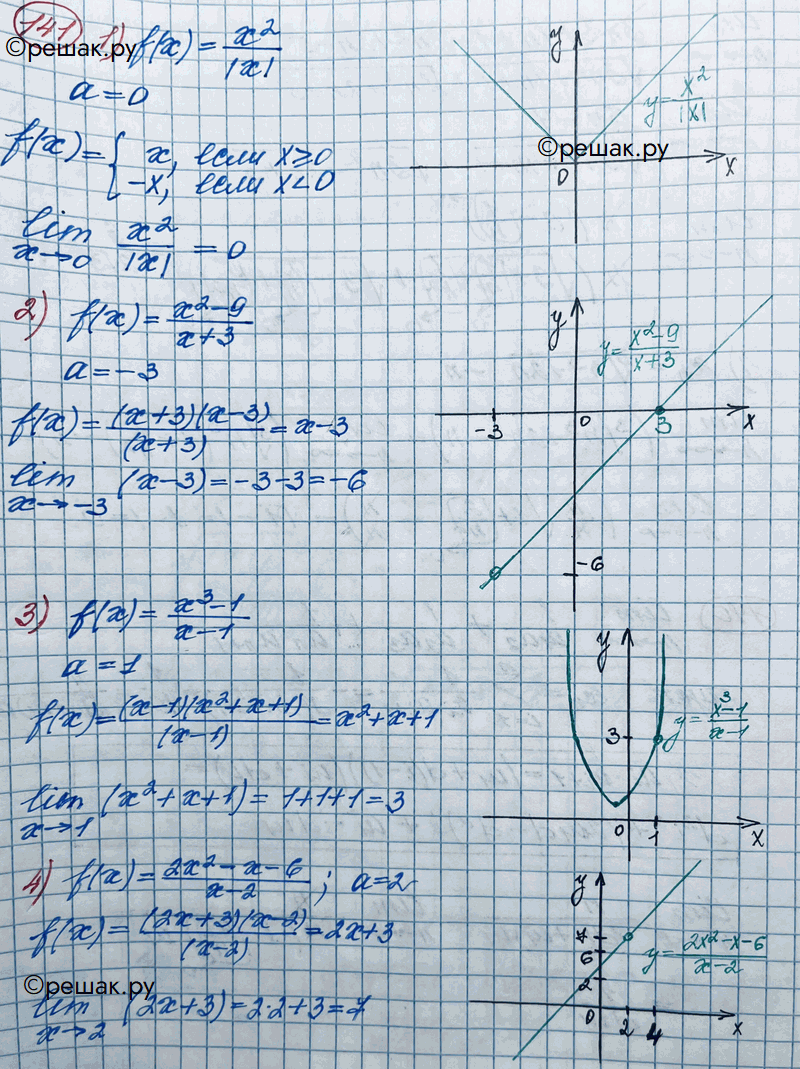 141 1) f(x) = x²/|x|
©решак.ру
a = 0
f(x) = { x, если x ≥ 0
-x, если x < 0
lim x→0 x²/|x| = 0
y
y = x²/|x|
©решак.ру
0 x
2) f(x) = x²-9/x+3
a = -3
f(x) = (x+3)(x-3)/(x+3) = x-3
lim x→-3 (x-3) = -3-3 = -6
y
y = x²-9/x+3
-3 0 3 x
-6
3) f(x) = x³-1/x-1
a = 1
f(x) = (x-1)(x²+x+1)/(x-1) = x²+x+1
lim x→1 (x²+x+1) = 1+1+1 = 3
y
y = x³-1/x-1
3
0 1 x
4) f(x) = 2x²-x-6/x-2 ; a = 2
f(x) = (2x+3)(x-2)/(x-2) = 2x+3
©решак.ру
lim x→2 (2x+3) = 2·2+3 = 7
y
7
6
y = 2x²-x-6/x-2
2
0 2 4 x